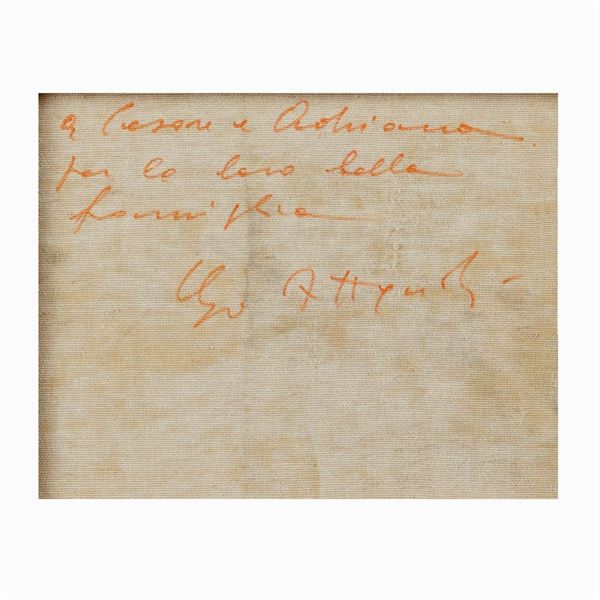 a Cesare e Adriana
per la loro bella
famiglia
Ugo Attardi